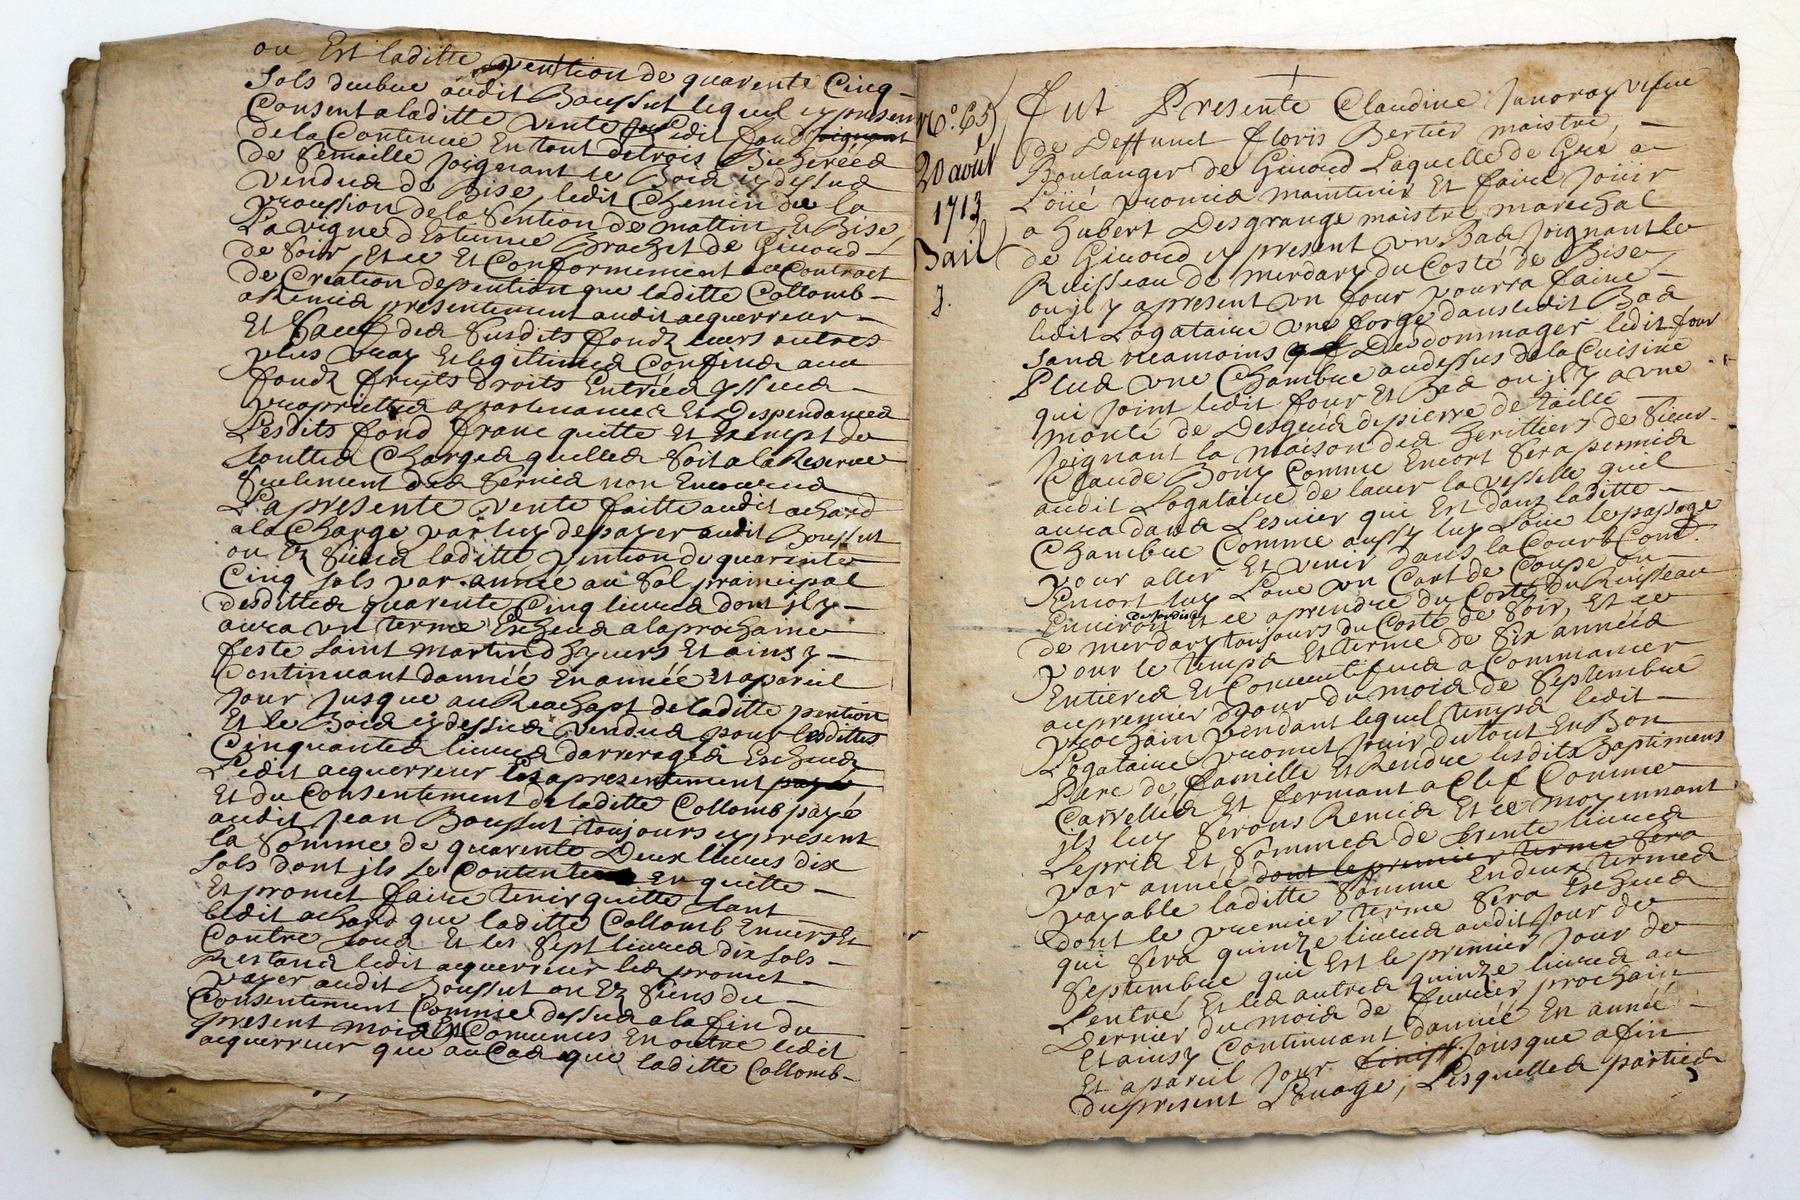 ou Est laditte pention de quarente Cinq
sols deubue audit Boussut lequel cy present
Consent a laditte vente ledit fond
de la Contenue En tout de trois Bicherées
de semaille Joignant le Bois cy dessus
vendus de Bise, ledit Chemin de la
de matin Et Bise,
La vigne d'Estienne Brachet de Givord
de soir, Et ce Et Conformement au Contract
de Creation de pention que laditte Collomb
a Remis presentement audit acquerreur
Et sauf des susdits fonds leurs autres
plus vray Et legitimes Confins aux
fonds fruits droits Entrées yssues
proprietes apartenances Et Despendances
Lesdits fond franc quitte Et Exempt de
touttes Charges quelles soit a la Reserve
seulement des servis non Encourus
La presente vente faitte audit achard
a la Charge par luy de payer audit Boussut
ou Es siens laditte pention de quarente
Cinq sols par année au sol principal
desdittes quarente Cinq livres dont jl y
aura un terme Escheus a la prochaine
feste saint Martin d'hyvers Et ainsy
Continuant d'année En année Et apareil
Jour Jusque au Reachapt de laditte pention
Et le Bois cy dessus vendus pour lesdittes
Cinquantes livres d'arrerages Escheus
Ledit acquerreur les a presentement payé
Et du Consentement de laditte Collomb payé
audit Jean Boussut toujours cy present
la somme de quarente Deux livres dix
sols dont jls se Contente En quitte
Et promet faire tenir quitte tant
ledit achard que laditte Collomb Envers Et
Contre tous Et les sept livres dix sols
Restans ledit acquerreur les promet
payer audit Boussut ou Es siens du
Consentement Comme dessus a la fin du
present mois Et Convenus En outre ledit
acquerreur que au Cas que laditte Collomb
No. 65
20 août
1713
Bail
J.
Fut Presente Claudine Janoray vefve
de Deffunct Floris Bertier maistre
Boulanger de Givord Laquelle de Gré a
Loüé promis maintenir Et faire Jouir
a Hubert Desgrange maistre marechal
de Givord cy present un Bas Joignant le
Ruisseau de merdary du Costé de Bise
ou jl y a present un four pourra faire
ledit Logataire une forge dans ledit Bas
sans neamoins Desdommager ledit four
Plus une Chambre audessus de la Cuisine
qui Joint ledit four Et Bas ou jl y a une
monté de Degrés de pierre de taille
Joignant la maison des heritiers de sieur
Claude Bony Comme Encort sera permis
audit Logataire de laver la vesselle quil
aura dans Lesvier qui Est dans laditte
Chambre Comme aussy luy Loüe le passage
pour aller Et venir dans la Court Com.
Encort luy Loüe un Cart de Coupe ou
Environ de jardin Et ce a prendre du Costé du Ruisseau
de merdary toujours du Costé de soir, Et ce
pour le temps Et terme de six années
Entieres Et Consecutifues a Commancer
au premier Jour du mois de septembre
prochain pendant lequel temps ledit
Logataire promet jouir du tout En Bon
Pere de famille Et Rendre lesdits Baptimens
Carrellés Et fermant a Clef Comme
jls luy serons Remis Et ce moyennant
Le pris Et sommes de trente livres
par année dont le premier terme sera
payable laditte somme En deux termes
dont le premier terme sera Escheus
qui sera quinze livres audit Jour de
septembre qui Est le premier Jour de
L'entré Et les autres quinze livres au
Dernier du mois de fevrier prochain
Et ainsy Continuant d'année En année
Et apareil Jour Jousque a fin
du present Louage, Lesquelles parties